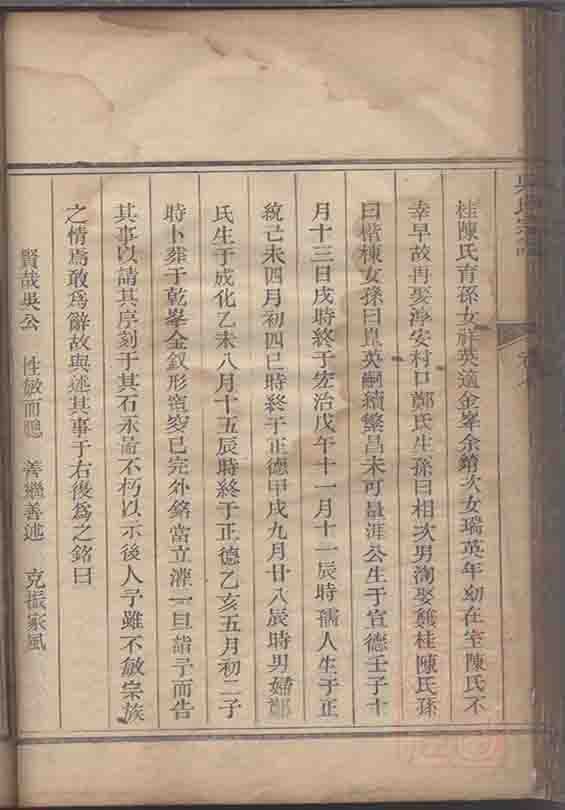 吳氏宗譜
卷七
桂陳氏育孫女祥英適金峯余銷次女瑞英年幼在室陳氏不
幸早故再娶淳安村口鄭氏生孫曰相次男洵娶雞桂陳氏孫
曰楷棟女孫曰崑英嗣續繁昌未可量涯公生于宣德壬子十
月十三日戌時終于宏治戊午十一月十一辰時孺人生于正
統己未四月初四巳時終于正德甲戌九月廿八辰時男婦鄭
氏生于成化乙未八月十五辰時終于正德乙亥五月初二子
時卜葬于乾峯金釵形窀穸已完外銘當立灌一旦詣予而告
其事以請其序刻于其石永啚不朽以示後人予雖不敏宗族
之情焉敢為辭故與述其事于右後為之銘曰
賢哉吳公 性敏而聰 善繼善述 克振家風